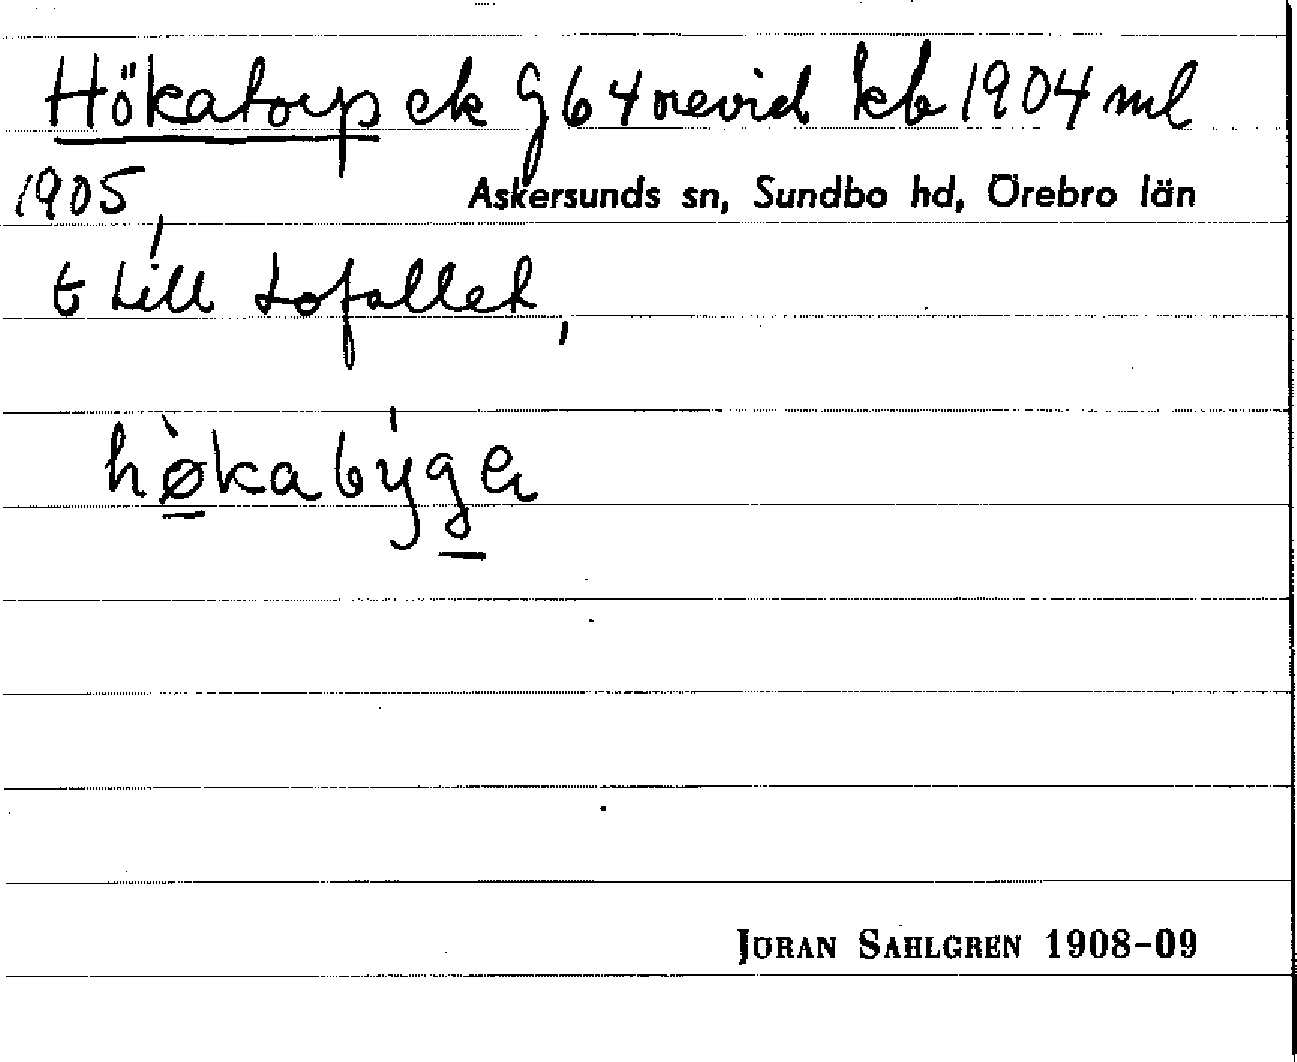 Hökatorp ek G 64 nevid kb 1904 ml
1905,
Askersunds sn, Sundbo hd, Örebro län
t till Lofallet,
hø̀kabýgά
JÖRAN SAHLGREN 1908-09